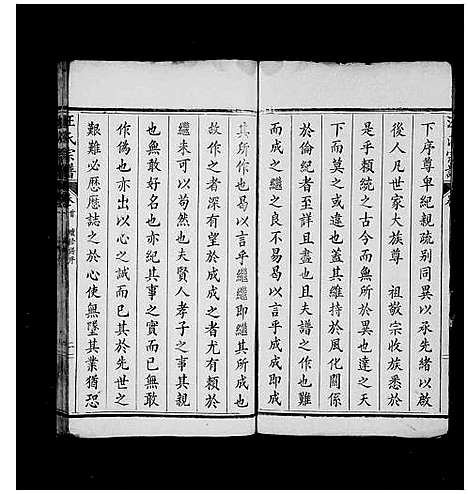 下序尊卑紀親疏别同異以承先緒以啟
後人凡世家大族尊　祖敬宗收族悉於
是乎賴統之古今而無所於異也達之天
下而莫之或違也蓋其維持於風化關係
於倫紀者至詳且盡也且夫譜之作也難
而成之繼之良不易易以言乎成成即成
其所作也以言乎繼繼即繼其所成也
故作之者深有望於成之者尤有賴於
繼來可以苟然也夫賢人孝子之事其親
也無敢好名也亦紀其事之實而已無敢
作偽也亦出以心之誠而已其於先世之
艱難必歷歷誌之於心使無墜其業猶恐
汪氏宗譜
卷首